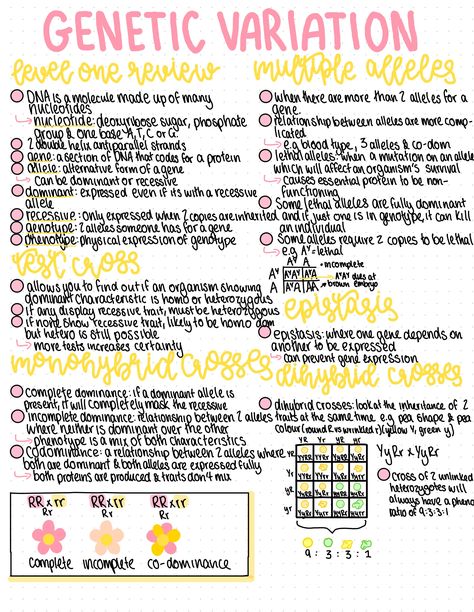 GENETIC VARIATION
level one review
DNA is a molecule made up of many
nucleotides
nucleotide: deoxyribose sugar, phosphate
group & one base A, T, C or G
2 double helix antiparallel strands
gene: a section of DNA that codes for a protein
allele: alternative form of a gene
Can be dominant or recessive
dominant: expressed even if its with a recessive
allele
recessive: Only expressed when 2 copies are inherited
genotype: 2 alleles someone has for a gene
phenotype: physical expression of genotype
test cross
allows you to find out if an organism showing
dominant characteristic is homo or heterozygous
if any display recessive trait, must be heterozygous
if none show recessive trait, likely to be homo dom
but hetero is still possible
more tests increases certainty
monohybrid crosses
complete dominance: if a dominant allele is
present, it will completely mask the recessive
incomplete dominance: relationship between 2 alleles
where neither is dominant over the other
phenotype is a mix of both characteristics
codominance: a relationship between 2 alleles where
both are dominant & both alleles are expressed fully
both proteins are produced & traits don't mix
RR x rr RR x rr RR x rr
Rr Rr Rr
complete incomplete co-dominance
multiple alleles
when there are more than 2 alleles for a
gene
relationship between alleles are more comp-
licated
e.g blood type, 3 alleles & co-dom
lethal alleles: when a mutation on an allele
which will affect an organism's survival
causes essential protein to be non-
functioning
Some lethal alleles are fully dominant
and if just one is in genotype, it can kill
an individual
Some alleles require 2 copies to be lethal
e.g Aʸ = lethal
- incomplete
Aʸ A
Aʸ AʸAʸ AʸA
A AʸA AA
AʸAʸ dies at
brown embryo
epistasis
epistasis: where one gene depends on
another to be expressed
can prevent gene expression
dihybrid crosses
dihybrid crosses: look at the inheritance of 2
traits at the same time e.g pea shape & pea
colour (round R vs wrinkled r) (yellow Y, green y)
YR Yr yR yr
YR
Yr
yR
yr
YyRr x YyRr
cross of 2 unlinked
heterozygotes will
always have a pheno
ratio of 9:3:3:1
9 : 3 : 3 : 1